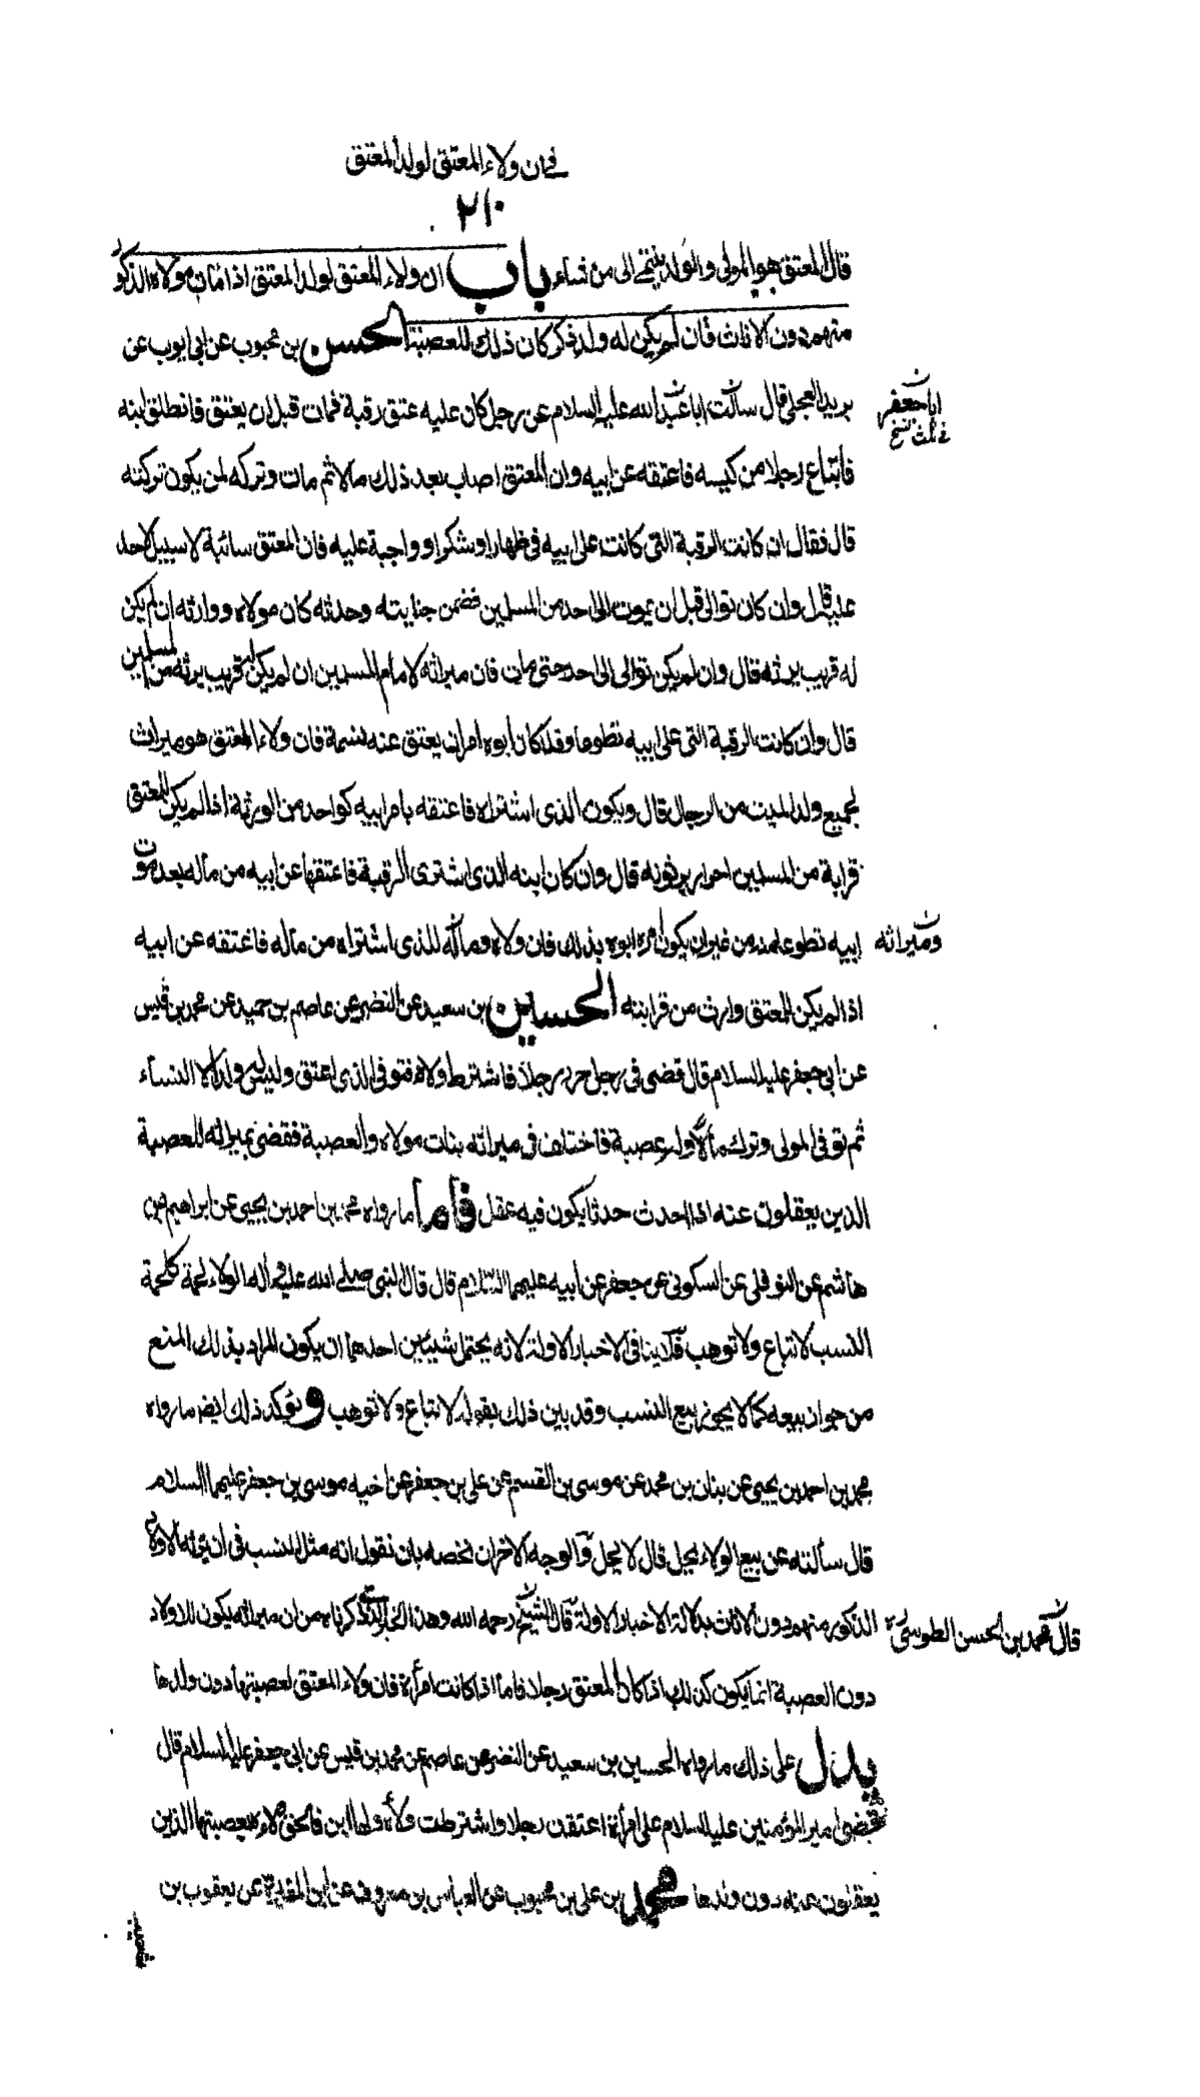 في ان ولاء المعتق لولد المعتق
٢١٠
قال المعتق هو المولى والولد ينتمي الى من شاء باب ان ولاء المعتق لولد المعتق اذا مات مولاه الذكور
منهم دون الاناث فان لم يكن له ولد ذكر كان ذلك للعصبة الحسن بن محبوب عن ابى ايوب عن
بريد العجلى قال سألت ابا عبد الله عليه السلام عن رجل كان عليه عتق رقبة فمات قبل ان يعتق فانطلق ابنه
ابا جعفر
في ثلث نسخ
فابتاع رجلا من كيسه فاعتقه عن ابيه وان المعتق اصاب بعد ذلك مالا ثم مات وتركه لمن يكون تركته
قال فقال ان كانت الرقبة التى كانت على ابيه فى ظهار او شكر او واجبة عليه فان المعتق سائبة لا سبيل لاحد
عليه قال وان كان توالى قبل ان يموت الى احد من المسلمين فضمن جنايته وحدثه كان مولاه ووارثه ان لم يكن
له قريب يرثه قال وان لم يكن توالى الى احد حتى مات فان ميراثه لامام المسلمين ان لم يكن له قريب يرثه من المسلمين
قال وان كانت الرقبة التى على ابيه تطوعا وقد كان ابوه امره ان يعتق عنه نسمة فان ولاء المعتق هو ميراث
لجميع ولد الميت من الرجال قال ويكون الذى اشتراه فاعتقه بامر ابيه كواحد من الورثة اذا لم يكن للمعتق
قرابة من المسلمين احرار يرثونه قال وان كان ابنه الذى اشترى الرقبة فاعتقها عن ابيه من ماله بعد موت
ابيه تطوعا منه من غير ان يكون امره ابوه بذلك فان ولاه وماله للذى اشتراه من ماله فاعتقه عن ابيه
وميراثه
اذا لم يكن للمعتق وارث من قرابته الحسين بن سعيد عن النضر عن عاصم بن حميد عن محمد بن قيس
عن ابى جعفر عليه السلام قال قضى فى رجل حرر رجلا فاشترط ولاه فتوفى الذى اعتق وليس له ولد الا النساء
ثم توفى المولى وترك مالا وله عصبة فاختلف فى ميراثه بنات مولاه والعصبة فقضى بميراثه للعصبة
الذين يعقلون عنه اذا احدث حدثا يكون فيه عقل فاما ما رواه محمد بن احمد بن يحيى عن ابراهيم بن
هاشم عن النوفلى عن السكونى عن جعفر عن ابيه عليهما السلام قال قال النبى صلى الله عليه واله الولاء لحمة كلحمة
النسب لا تباع ولا توهب فلا ينافى الاخبار الاولة لانه يحتمل شيئين احدهما ان يكون المراد بذلك المنع
من جواز بيعه كما لا يجوز بيع النسب وقد بين ذلك بقوله لا تباع ولا توهب ويؤكد ذلك ايضا ما رواه
محمد بن احمد بن يحيى عن بنان بن محمد عن موسى بن القسم عن على بن جعفر عن اخيه موسى بن جعفر عليهما السلام
قال سألته عن بيع الولاء يحل قال لا يحل والوجه الاخر ان نخصه بان نقول انه مثل النسب فى ان يرثه الاولاد
الذكور منهم دون الاناث بدلالة الاخبار الاولة قال الشيخ رحمه الله وهذا الخبر الذى ذكرناه من ان ميراثه يكون للاولاد
قال محمد بن الحسن الطوسى ره
دون العصبة انما يكون كذلك اذا كان المعتق رجلا فاما اذا كانت امرأة فان ولاء المعتق لعصبتها دون ولدها
يدل على ذلك ما رواه الحسين بن سعيد عن النضر عن عاصم عن محمد بن قيس عن ابى جعفر عليه السلام قال
قضى امير المؤمنين عليه السلام على امرأة اعتقت رجلا واشترطت ولاه ولها ابن فالحق ولاءه بعصبتها الذين
يعقلون عنه دون ولدها محمد بن على بن محبوب عن العباس بن معروف عن ابن المغيرة عن يعقوب بن
شعيب